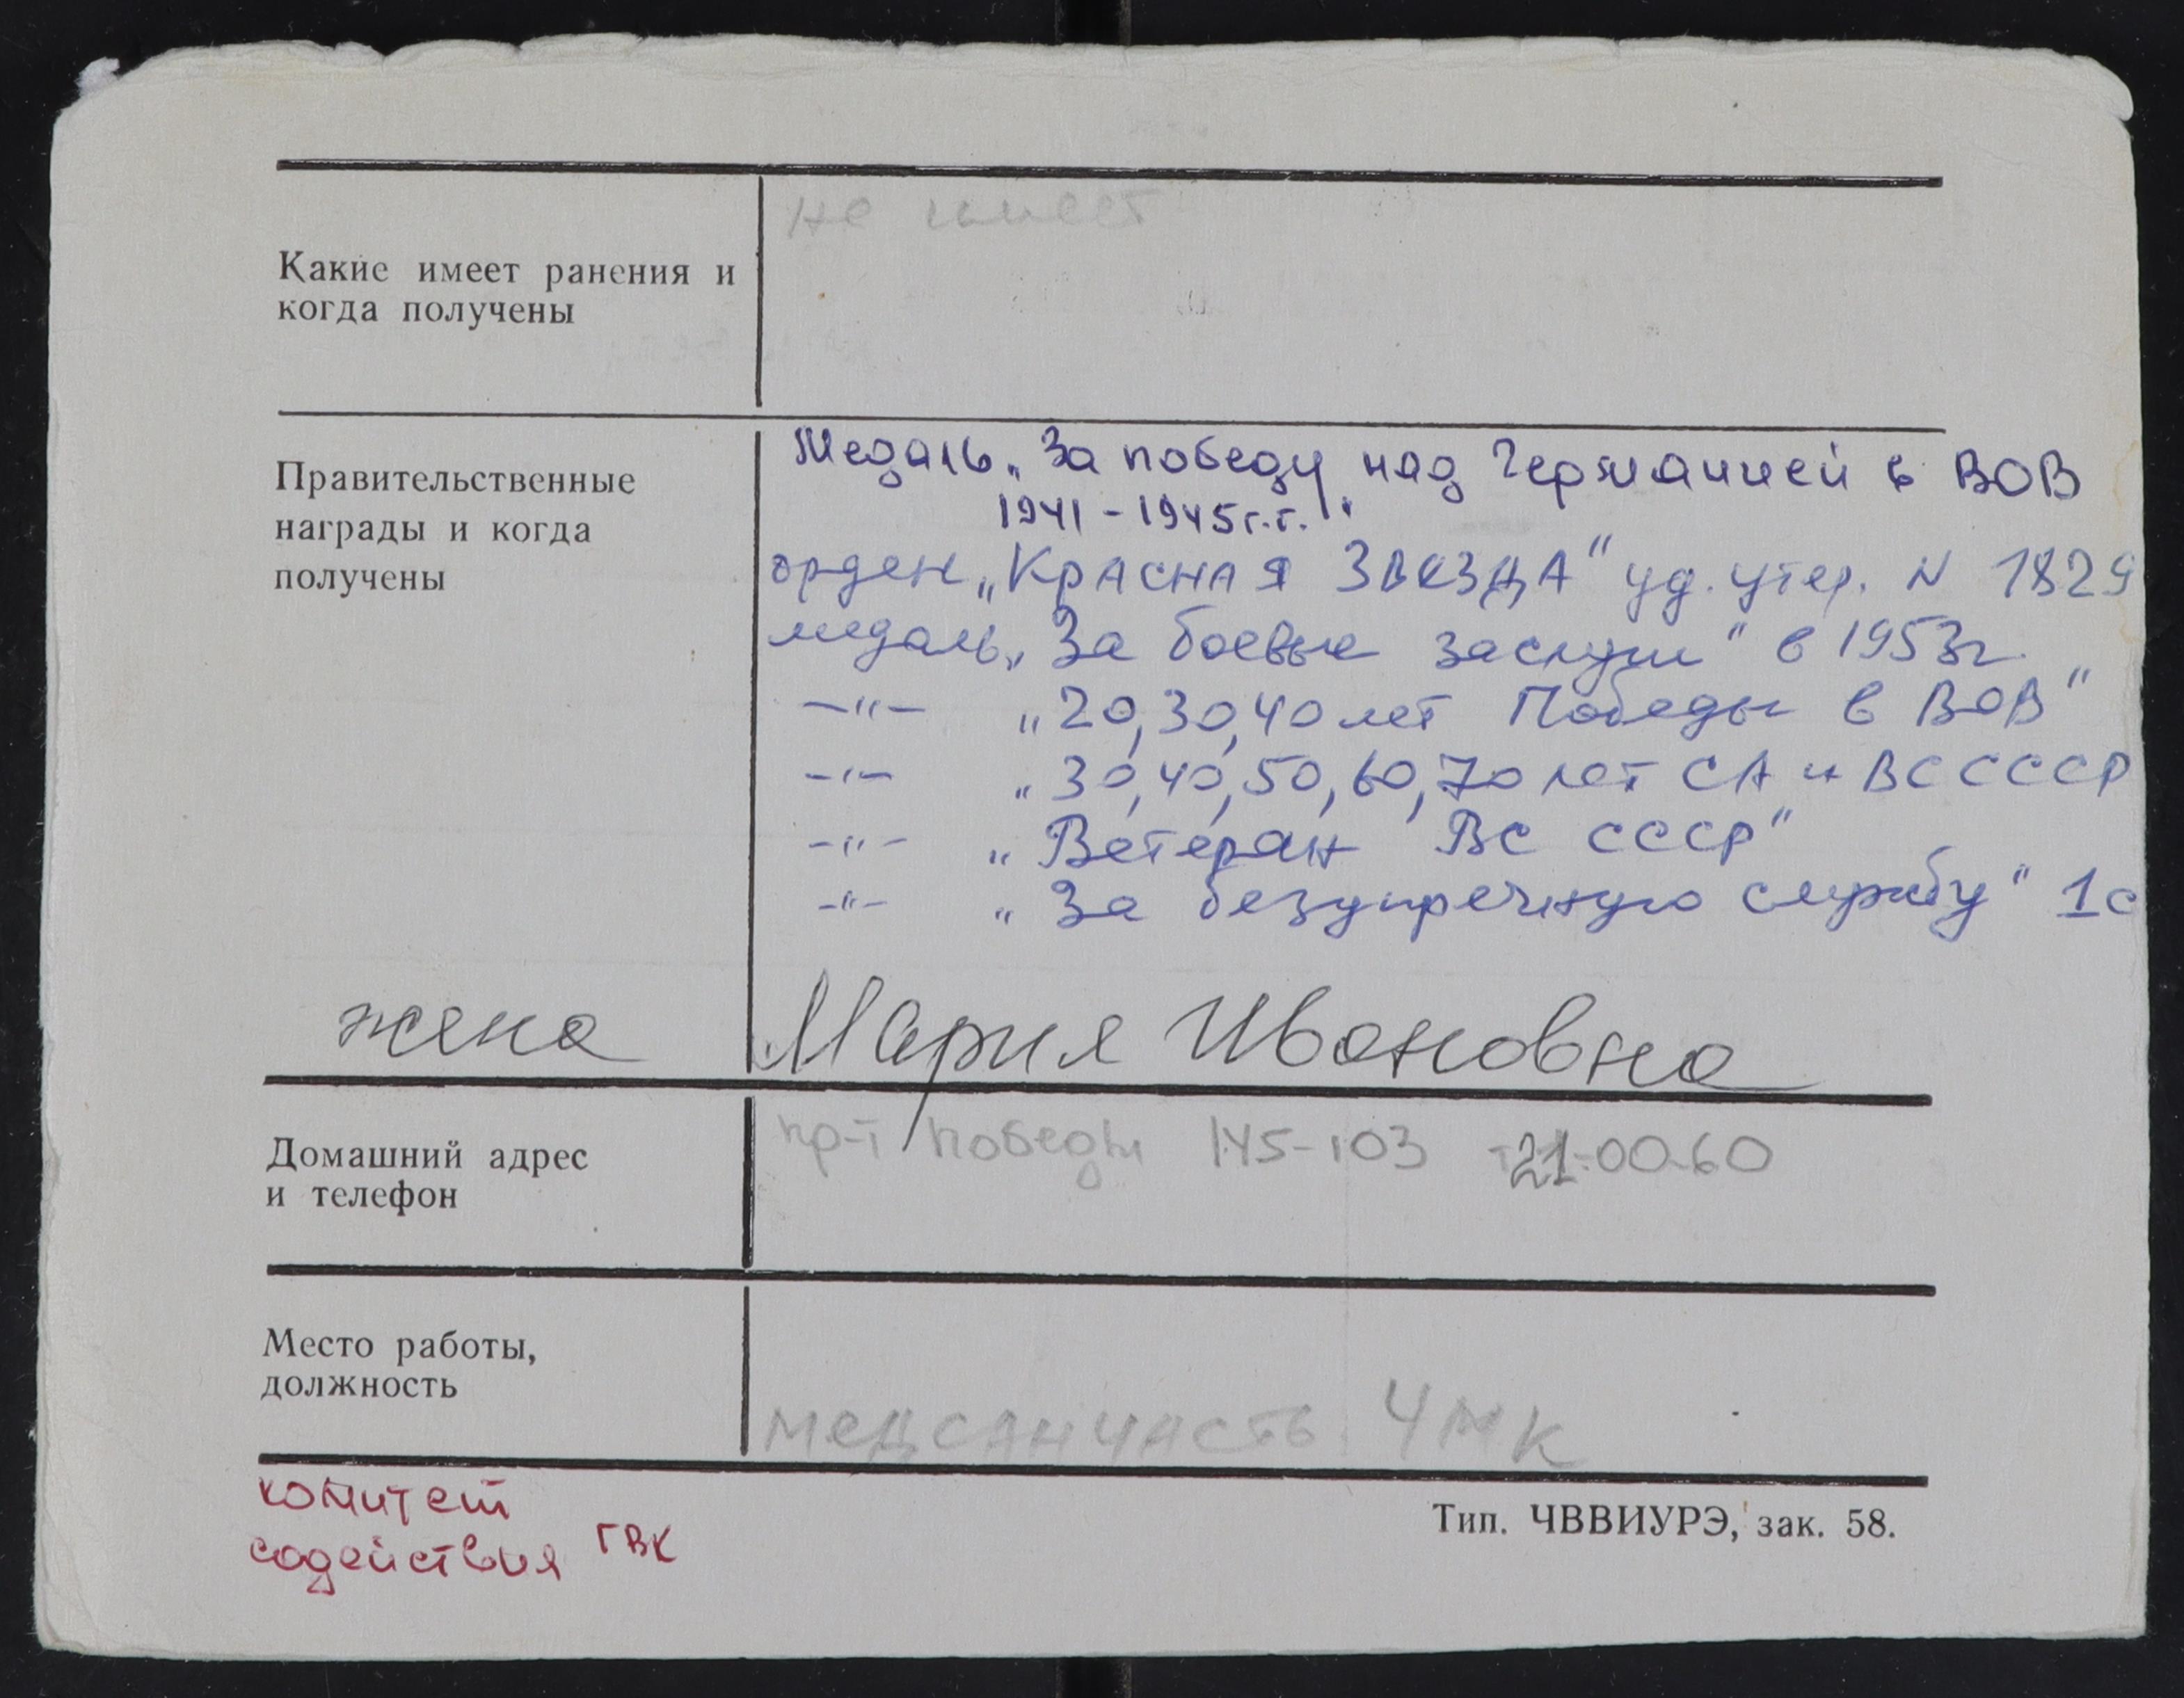 не имеет
Какие имеет ранения и
когда получены
Правительственные
награды и когда
получены
Медаль „За победу над Германией в ВОВ
1941-1945г.г."
орден „КРАСНАЯ ЗВЕЗДА" уд. утер. N 1829
медаль „За боевые заслуги" в 1953г.
-"- „20,30,40 лет Победы в ВОВ"
-"- „30,40,50,60,70 лет СА и ВС СССР
-"- „Ветеран ВС СССР"
-"- „За безупречную службу" 1с
жена Мария Ивановна
Домашний адрес
и телефон
пр-т Победы 145-103 т. 21-00-60
Место работы,
должность
медсанчасть ЧМК
комитет
содействия ГВК
Тип. ЧВВИУРЭ, зак. 58.